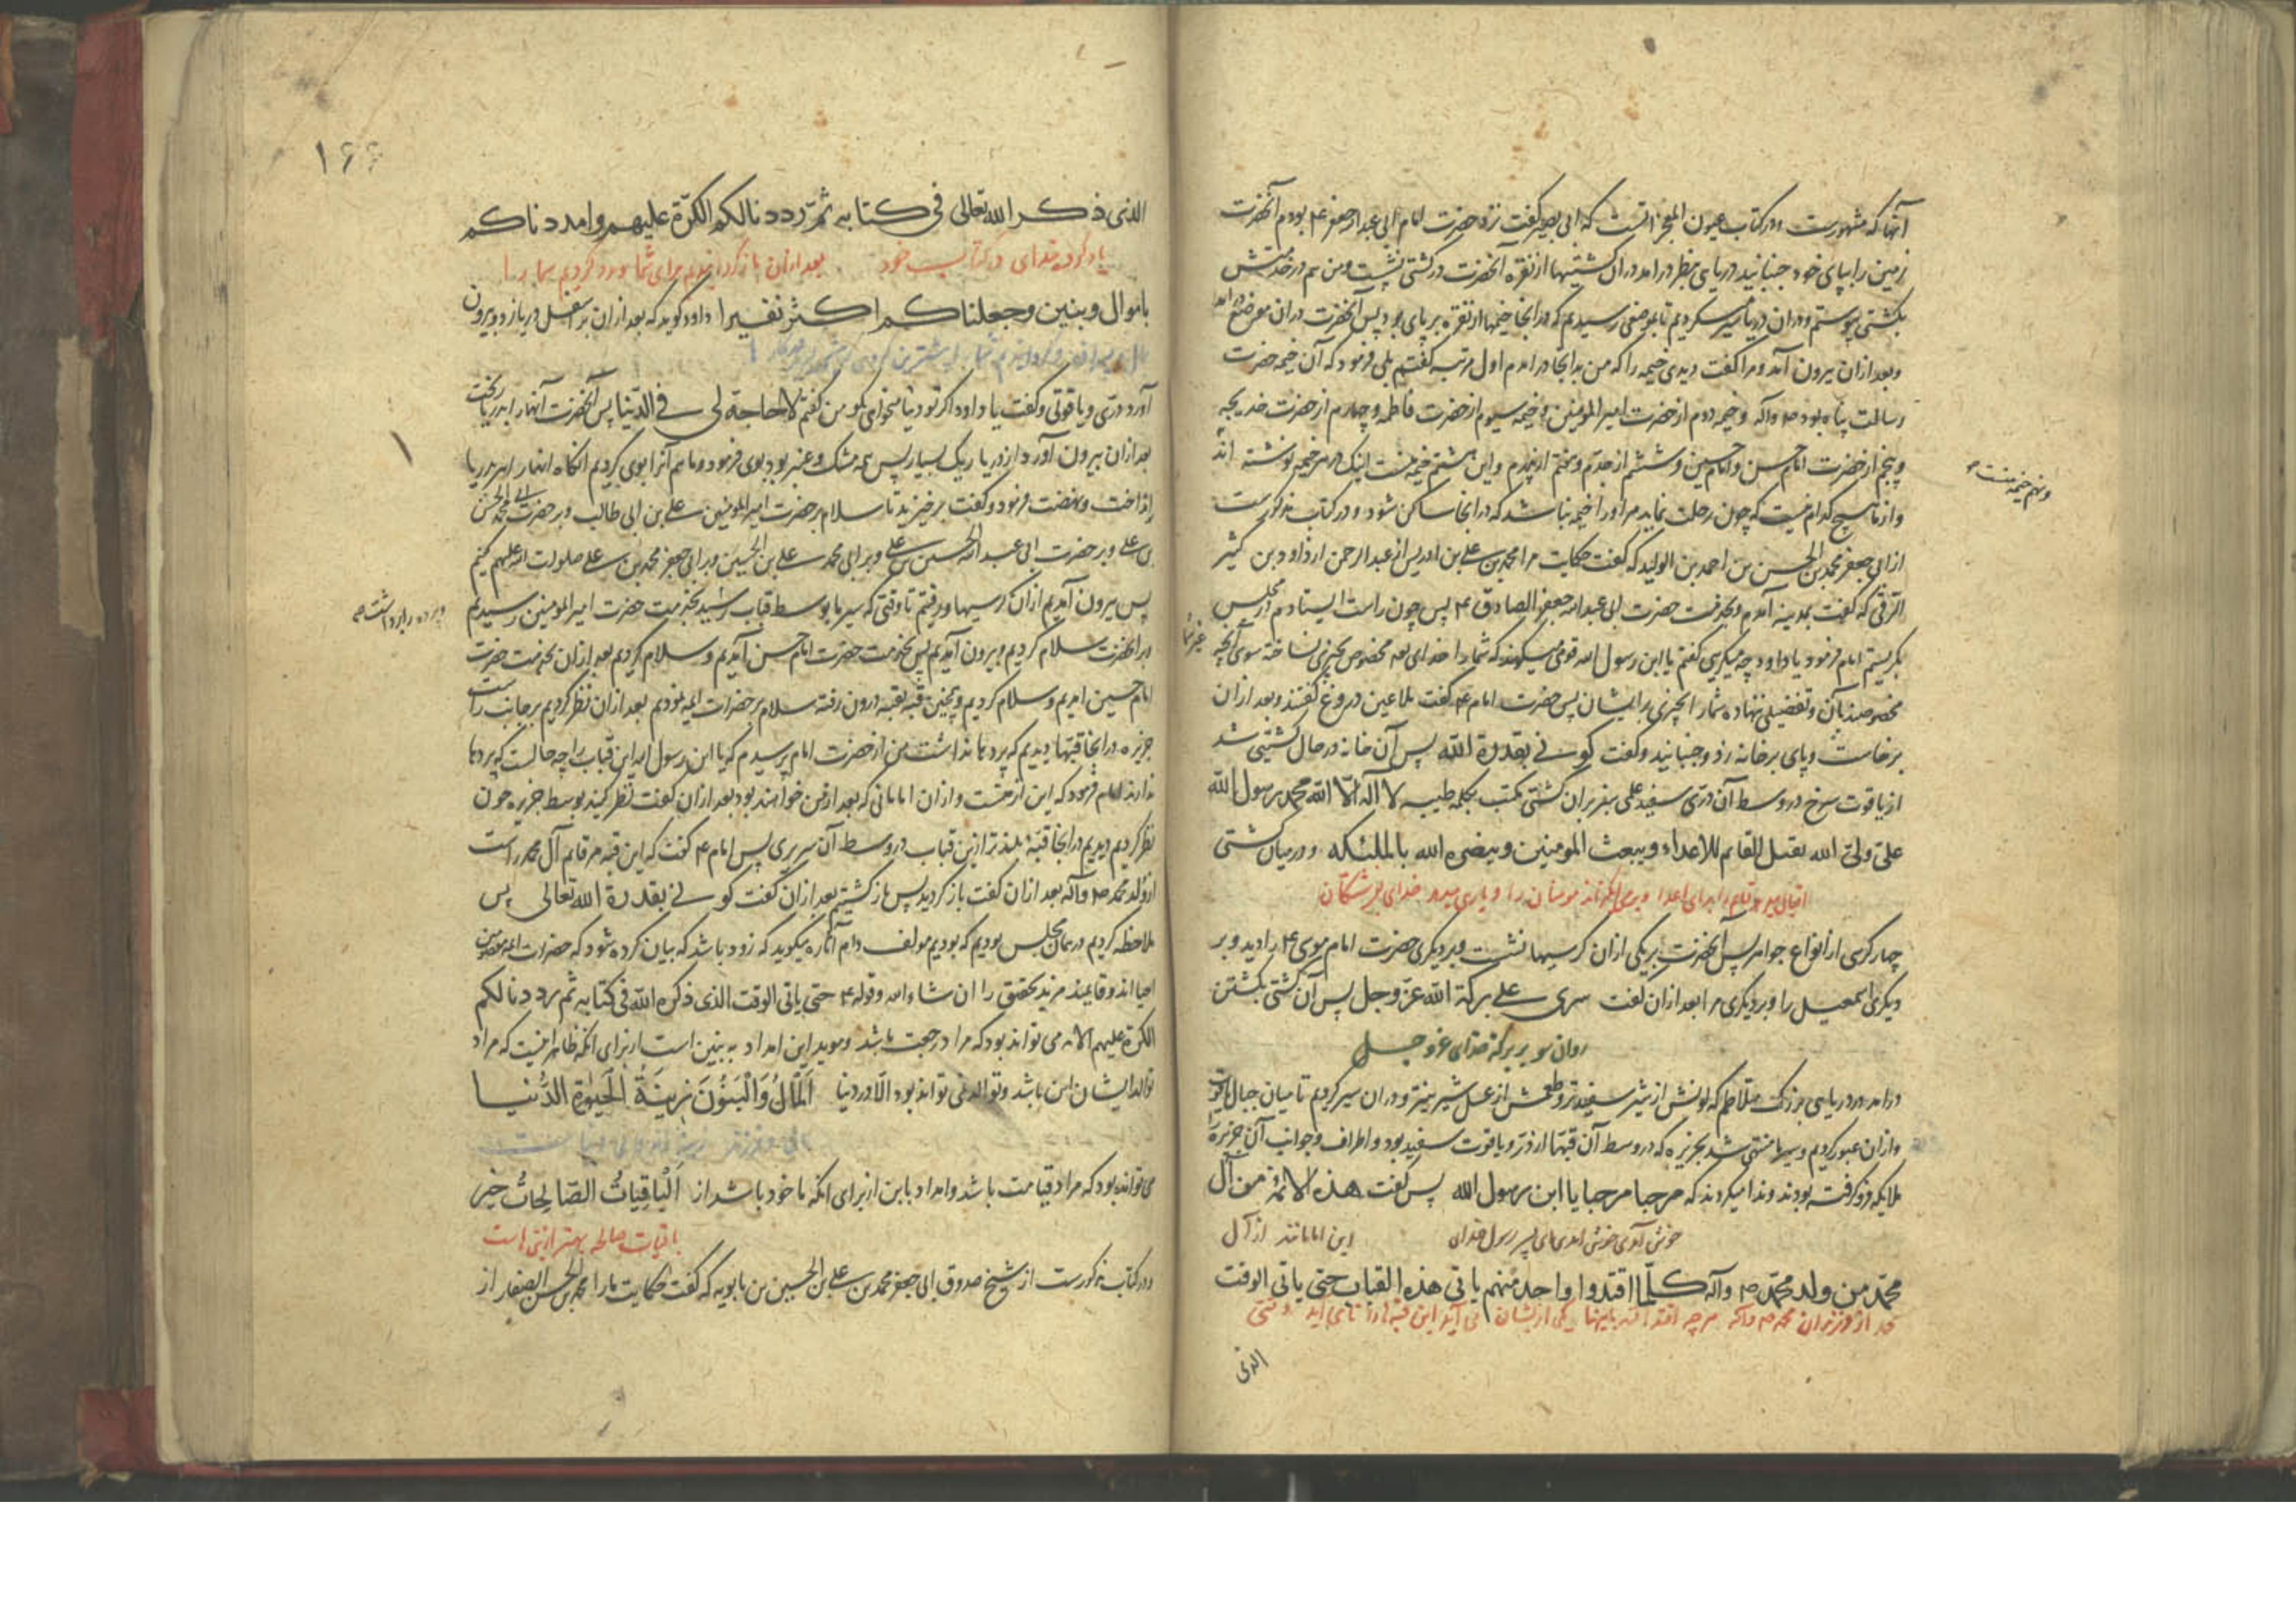 آنها که مشهورست و در کتاب عیون المعجزاتست که ابی بصیر گفت نزد حضرت امام ابی عبدالله جعفر ع بودم آنحضرت
زمین را بپای خود جنبانید دریای بنظر درامد دران کشتیها از نقره آنحضرت در کشتی نشست و من هم در خدمتش
بکشتی پیوستم و دران دریا سیر میکردیم تا بموضعی رسیدیم که در انجا خیمها از نقره بر پای بود پس آنحضرت دران موضع درامد
و بعد ازان بیرون آمد و مرا گفت دیدی خیمه را که من بدانجا درامدم اول مرتبه گفتم بلی فرمود که آن خیمه حضرت
رسالت پناه بود ص وآله و خیمه دوم از حضرت امیرالمومنین و خیمه سیوم از حضرت فاطمه و چهارم از حضرت خدیجه
و پنجم از حضرت امام حسن و امام حسین و ششم از جدم و هفتم از پدرم و این هشتم خیمه منست اینک در هر خیمه نوشته اند
و نهم خیمه منست
و از ما هیچ کدام نیست که چون رحلت نماید مر او را خیمه نباشد که در انجا ساکن شود و در کتاب مذکورست
از ابی جعفر محمد بن الحسن بن احمد بن الولید که گفت حکایت مرا محمد بن علی بن ادریس از عبدالرحمن از داود بن کثیر
الرقی که گفت بمدینه آمدم و بخدمت حضرت ابی عبدالله جعفر الصادق ع پس چون راست ایستادم در مجلس
بگریستم امام فرمود یا داود چه میگریی گفتم یا ابن رسول الله قومی میگویند که شما را خدای تعالی مخصوص بچیزی نساخته سوی آنچه
غیر شما
مخصوصند بآن و تفضیلی ننهاده شما را بچیزی بر ایشان پس حضرت امام ع گفت ملاعین دروغ گفتند و بعد ازان
برخاست و پای بر خانه زد و جنبانید و گفت کونی بقدرة الله پس آن خانه در حال کشتی شد
از یاقوت سرخ در وسط آن دری سفید علمی سبز بران کشتی مکتب بکلمه طیبه لا اله الا الله محمد رسول الله
علی ولی الله یقتل القایم للاعداء و یبعث المومنین و ینصره الله بالملئکه و در میان کشتی
چهار کرسی از انواع جواهر پس آنحضرت بر یکی ازان کرسیها نشست و بر دیگری حضرت امام موسی ع را دید و بر
دیگری اسمعیل را و بر دیگری مرا بعد ازان گفت سیری علی برکة الله عز وجل پس آن کشتی بگشتن
روان شو بر برکة خدای عز و جل
درامد در دریای بزرگ متلاطم که لونش از شیر سفیدتر و طعمش از عسل شیرینتر و دران سیر کردیم تا میان جبال یاقوت
و ازان عبور کردیم و سیر ما منتهی شد بجزیره که در وسط آن قبتها از در و یاقوت سفید بود و اطراف و جوانب آن جزیره
ملایکه فرو گرفته بودند و ندا میکردند که مرحبا مرحبا یا ابن رسول الله پس گفت هذه الائمة من آل
خوش آمدی خوش آمدی ای پسر رسول خدای این امامانند از آل
محمد من ولد محمد ص وآله کلما افتقدوا واحد منهم یاتی هذه القباب حتی یاتی الوقت
الذی
۱۶۶
الذی ذکر الله تعالی فی کتابه ثم رددنا لکم الکرة علیهم وامددناکم
یاد کرده خدای در کتاب خود بعد ازان باز گردانیدیم برای شما و مدد کردیم شما را
باموال وبنین وجعلناکم اکثر نفیرا داود گوید که بعد ازان بر اسفل دریا زد و بیرون
آورد دری و یاقوتی و گفت یا داود اگر تو دنیا میخواهی بگو من گفتم لا حاجة لی فی الدنیا پس آنحضرت آنها را بدریا ریخت
بعد ازان بیرون آورد از دریا ریک بسیار پس همه مشک و عنبر بود ببوی فرمود و ما هم آنرا بوی کردیم انگاه آنها را در دریا
انداخت و نهضت فرمود و گفت برخیزید تا سلام بر حضرت امیرالمومنین علی بن ابی طالب و بر حضرت ابی محمد الحسن
بن علی و بر حضرت ابی عبدالله الحسین بن علی و بر ابی محمد علی بن الحسین و بر ابی جعفر محمد بن علی صلوات الله علیهم کنیم
پس بیرون آمدیم ازان کرسیها و رفتیم تا وقتی که سیر ما بوسط قباب رسید بخدمت حضرت امیرالمومنین رسیدیم
و پرده را برداشت
بر آنحضرت سلام کردیم و بیرون آمدیم پس بخدمت حضرت امام حسن آمدیم و سلام کردیم بعد ازان بخدمت حضرت
امام حسین آمدیم و سلام کردیم و همچنین قبه بقبه درون رفته سلام بر حضرات ائمه نمودیم بعد ازان نظر کردیم بر جانب راست
جزیره در انجا قبتها دیدیم که پردها نداشت من از حضرت امام پرسیدم که یا ابن رسول الله این قباب را چه حالست که پردها
ندارند امام فرمود که این از منست و ازان امامانی که بعد از من خواهند بود بعد ازان گفت نظر کنید بوسط جزیره چون
نظر کردیم دیدیم در انجا قبه بلندتر ازین قباب در وسط آن سریری پس امام ع گفت که این قبه مر قایم آل محمد راست
از ولد محمد ص وآله بعد ازان گفت باز گردید پس باز گشتیم بعد ازان گفت کونی بقدرة الله تعالی پس
ملاحظه کردیم در همان مجلس بودیم که بودیم مولف دام آثاره میگوید که زود باشد که بیان کرده شود که حضرات ائمه معصومین
احیا اند و قایمند مزید تحقیق را ان شاء الله و قوله ع حتی یاتی الوقت الذی ذکره الله فی کتابه ثم رددنا لکم
الکرة علیهم الایه می تواند بود که مراد رجعت باشد و موید این امداد به بنین است از برای انکه ظاهر اینست که مراد
توالد ایشان این باشد و توالد نمی تواند بود الا در دنیا اَلْمَالُ وَالْبَنُونَ زِینَةُ الْحَیٰوةِ الدُّنیا
می تواند بود که مراد قیامت باشد و امداد بابن از برای انکه ماخود باشد از اَلْبَاقِیَاتُ الصَّالِحَاتُ خیر
باقیات صالحه بهتر ازینی است
و در کتاب مذکورست از شیخ صدوق ابی جعفر محمد بن علی بن الحسین بن بابویه که گفت حکایت ما را محمد بن الحسن الصفار از